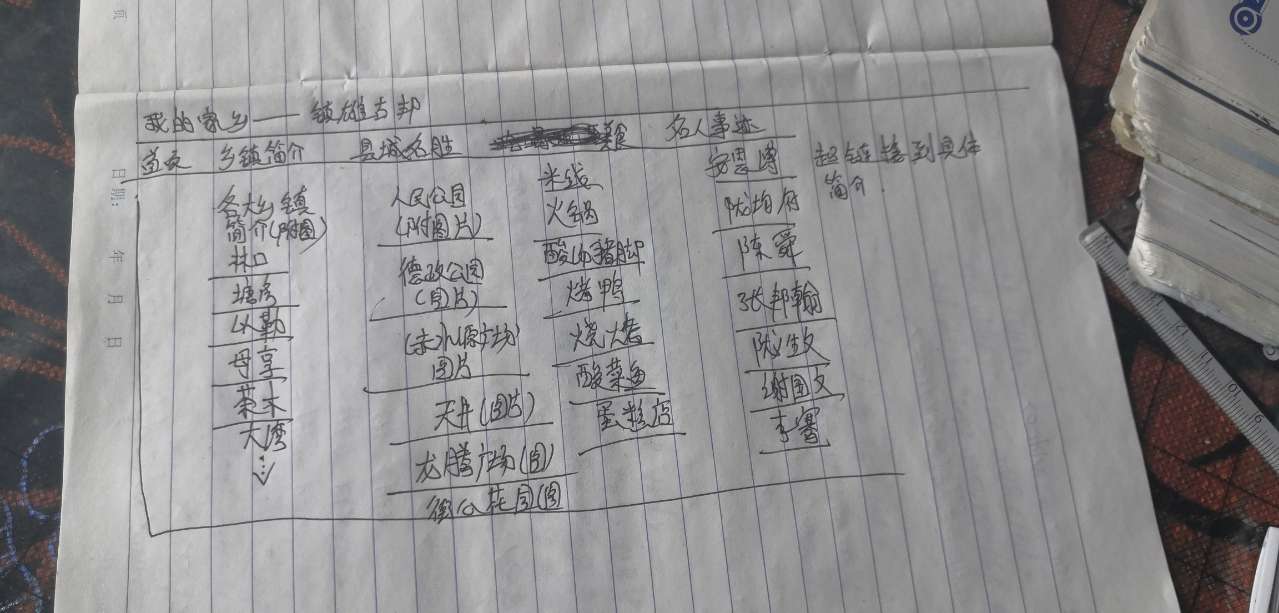 我的家乡——镇雄古邦
首页 乡镇简介 县城名胜 美食 名人事迹
各大乡镇
简介(附图)
林口
塘房
以勒
母享
茶木
大湾
人民公园
(附图片)
德政公园
(图片)
(赤水源广场)
图片
天井(图片)
龙腾广场(图)
衡公花园(图
米线
火锅
酸汤猪脚
烤鸭
烧烤
酸菜鱼
蛋糕店
安恩溥
陇均府
陈舜
张邦翰
陇生文
谢国文
李骞
超链接到具体
简介.
日期: 年 月 日
页